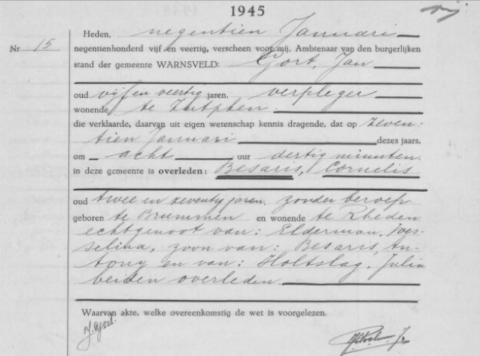 1945
Heden, negentien Januari
Nr 15 negentienhonderd vijf en veertig, verscheen voor mij, Ambtenaar van den burgerlijken
stand der gemeente WARNSVELD: Gort, Jan
oud vijf en veertig jaren, verpleger
wonende te Zutphen
die verklaarde, daarvan uit eigen wetenschap kennis dragende, dat op zeven-
tien Januari dezes jaars,
om acht uur dertig minuten
in deze gemeente is overleden: Besaris, Cornelis
oud twee en zeventig jaren, zonder beroep
geboren te Brummen en wonende te Rheden
echtgenoot van: Elderman, Wes-
selina, zoon van: Besaris, An-
tony en van: Holtslag, Julia
beiden overleden
Waarvan akte, welke overeenkomstig de wet is voorgelezen.
J. Gort.